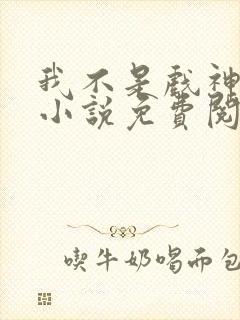 我不是戲神
小說免費閱
喫牛奶喝而包